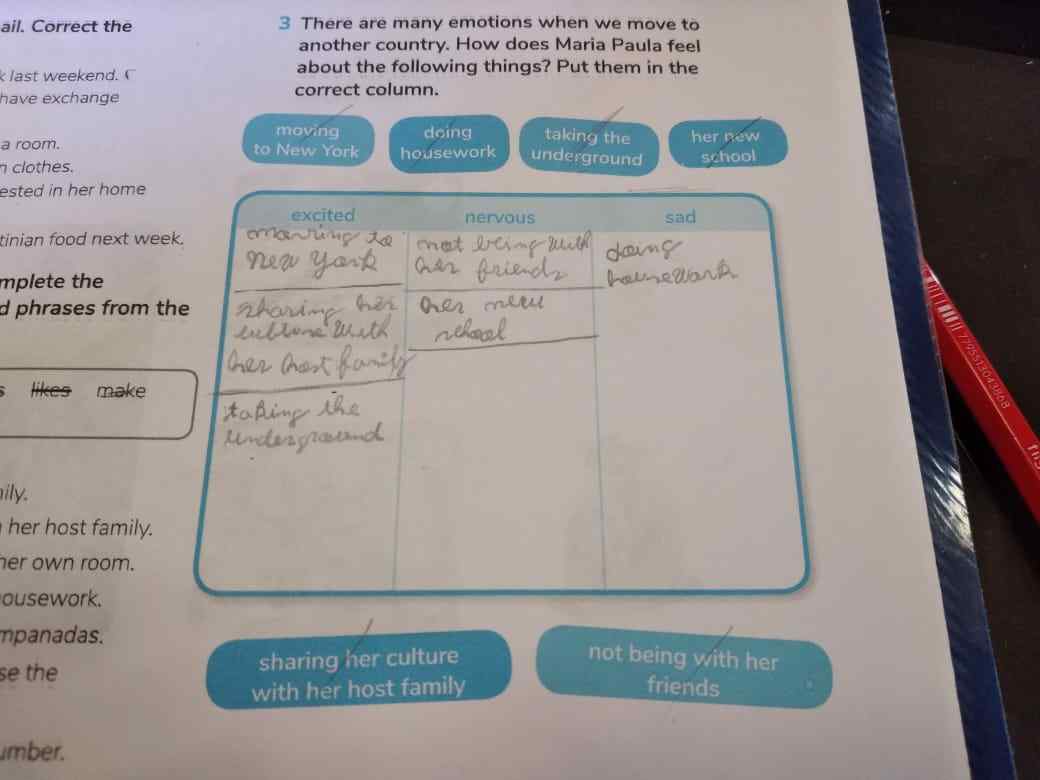 ail. Correct the
k last weekend.
have exchange
a room.
n clothes.
ested in her home
tinian food next week.
mplete the
d phrases from the
s likes make
ily.
her host family.
her own room.
ousework.
mpanadas.
se the
umber.
3 There are many emotions when we move to
another country. How does Maria Paula feel
about the following things? Put them in the
correct column.
moving
to New York
doing
housework
taking the
underground
her new
school
excited nervous sad
moving to
New York
sharing her
culture with
her host family
taking the
underground
not being with
her friends
her new
school
doing
housework
sharing her culture
with her host family
not being with her
friends
7795513043868